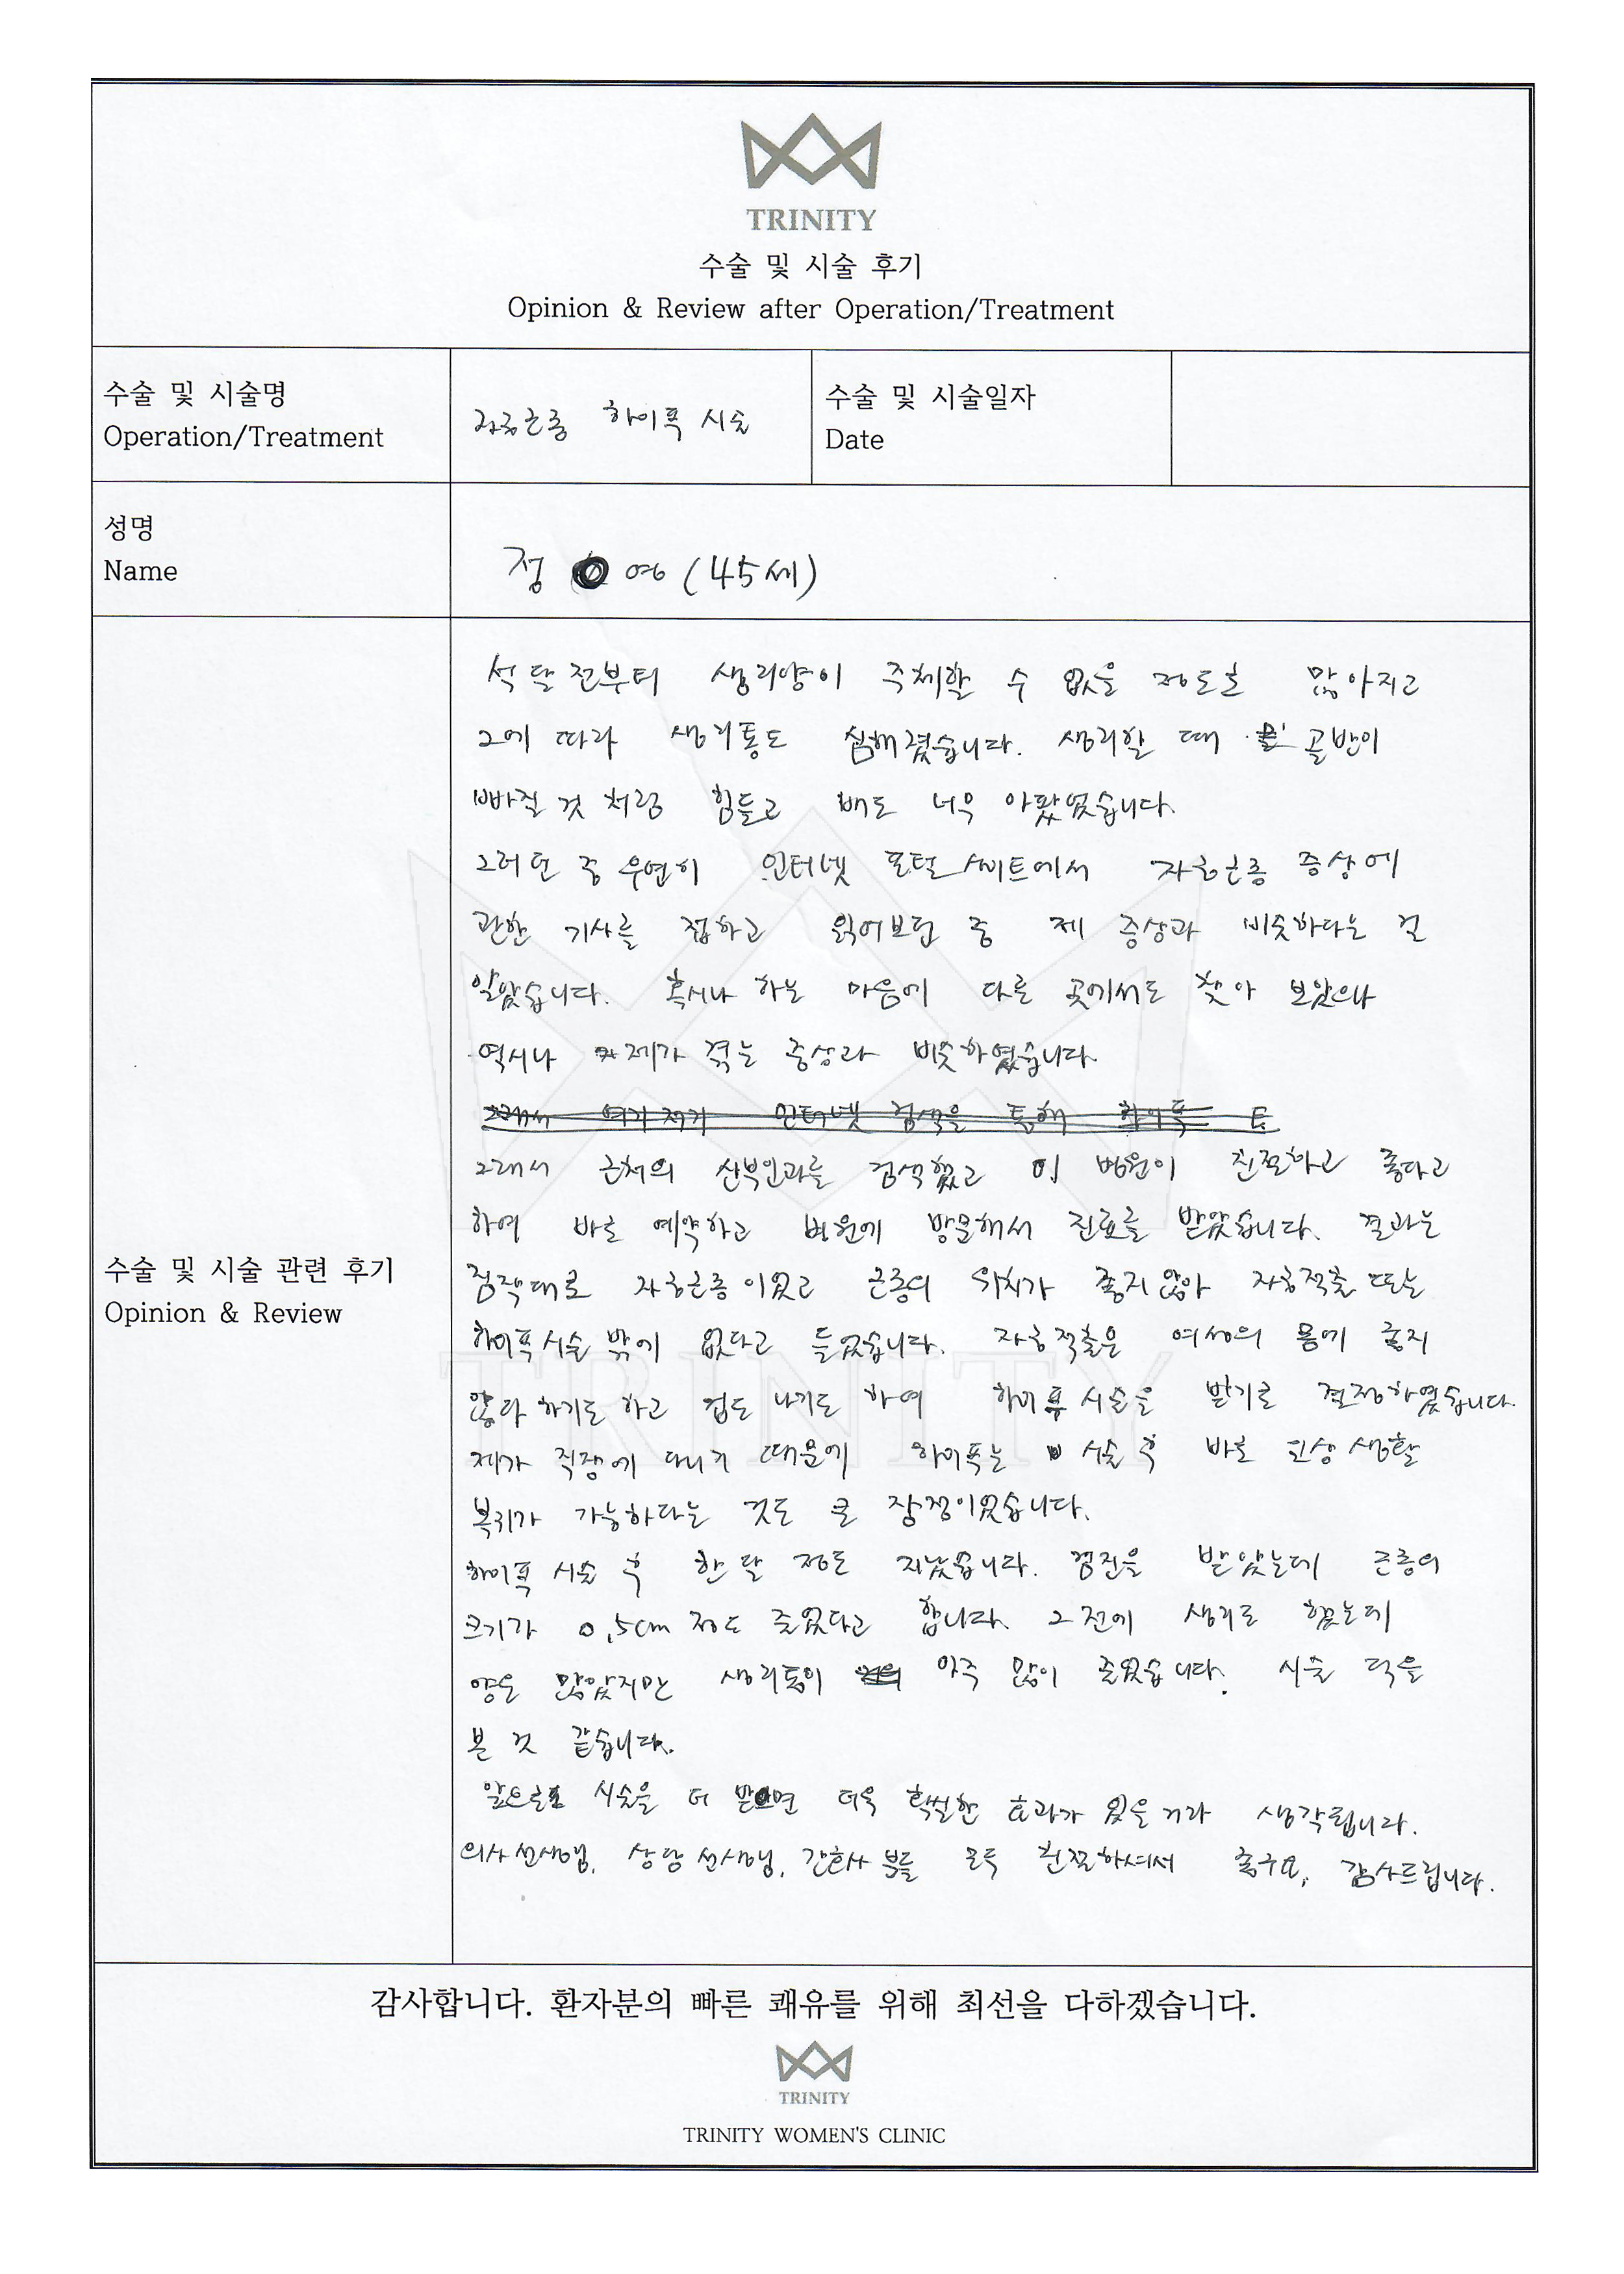 TRINITY
수술 및 시술 후기
Opinion & Review after Operation/Treatment
수술 및 시술명
Operation/Treatment
자궁근종 하이푸 시술
수술 및 시술일자
Date
성명
Name
정 영 (45세)
석 달 전부터 생리양이 주체할 수 없을 정도로 많아지고
그에 따라 생리통도 심해졌습니다. 생리할 때 골반이
빠질 것 처럼 힘들고 배도 너무 아팠었습니다.
그러던 중 우연히 인터넷 포털 싸이트에서 자궁근종 증상에
관한 기사를 접하고 읽어보던 중 제 증상과 비슷하다는 걸
알았습니다. 혹시나 하는 마음에 다른 곳에서도 찾아 보았으나
역시나 제가 겪는 증상과 비슷하였습니다.
그래서 여기저기 인터넷 검색을 통해 하이푸
그래서 근처의 산부인과를 검색했고 이 병원이 친절하고 좋다고
하여 바로 예약하고 병원에 방문해서 진료를 받았습니다. 결과는
짐작대로 자궁근종이었고 근종의 위치가 좋지 않아 자궁적출 또는
하이푸 시술 밖에 없다고 들었습니다. 자궁적출은 여성의 몸에 좋지
않다 하기도 하고 겁도 나기도 하여 하이푸 시술을 받기로 결정하였습니다.
제가 직장에 다니기 때문에 하이푸는 시술 후 바로 일상 생활
복귀가 가능하다는 것도 큰 장점이었습니다.
하이푸 시술 후 한 달 정도 지났습니다. 검진을 받았는데 근종의
크기가 0.5cm 정도 줄었다고 합니다. 그 전에 생리를 했는데
양은 많았지만 생리통이 아주 많이 줄었습니다. 시술 덕을
본 것 같습니다.
앞으로 시술을 더 받으면 더욱 확실한 효과가 있을거라 생각됩니다.
의사선생님, 상담선생님, 간호사 분들 모두 친절하셔서 좋구요, 감사드립니다.
수술 및 시술 관련 후기
Opinion & Review
감사합니다. 환자분의 빠른 쾌유를 위해 최선을 다하겠습니다.
TRINITY
TRINITY WOMEN'S CLINIC